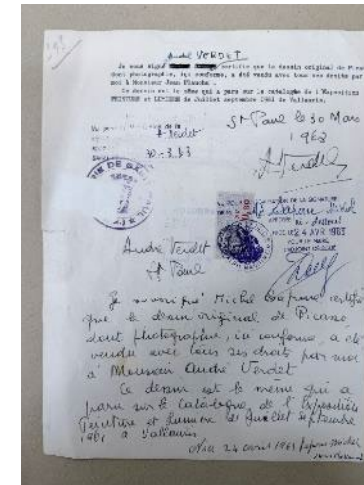 André VERDET
Je sous signé certifie que le dessin original de Picasso
dont photographie, ici conforme, a été vendu avec tous ses droits par
moi à Monsieur Jean
Ce dessin est le même qui a paru sur le catalogue de l'Exposition
PEINTURE et LUMIERE de Juillet septembre 1961 de Vallauris.
St Paul le 30 Mars
1963
A Verdet
30-3.63
A. Verdet
DE LA SIGNATURE
NICE LE 24 AVR 1963
POUR LE MAIRE
André Verdet
St Paul
Je soussigné Michel certifie
que le dessin original de Picasso
dont photographie, ici conforme, a été
vendu avec tous ses droits par moi
à Monsieur André Verdet
Ce dessin est le même qui a
paru sur le Catalogue de l'Exposition
Peinture et Lumière de Juillet Septembre
1961 à Vallauris
Nice 24 avril 1963